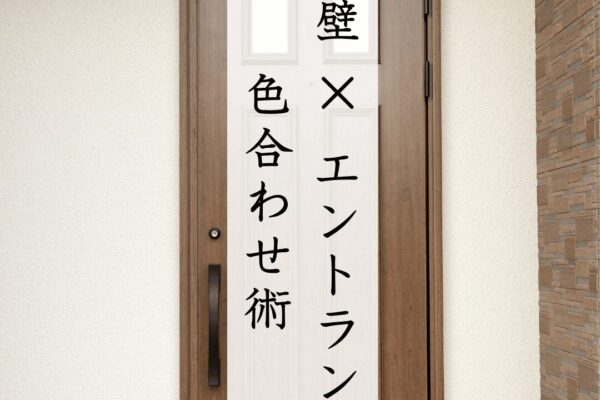 壁 × エントラン
色合わせ術